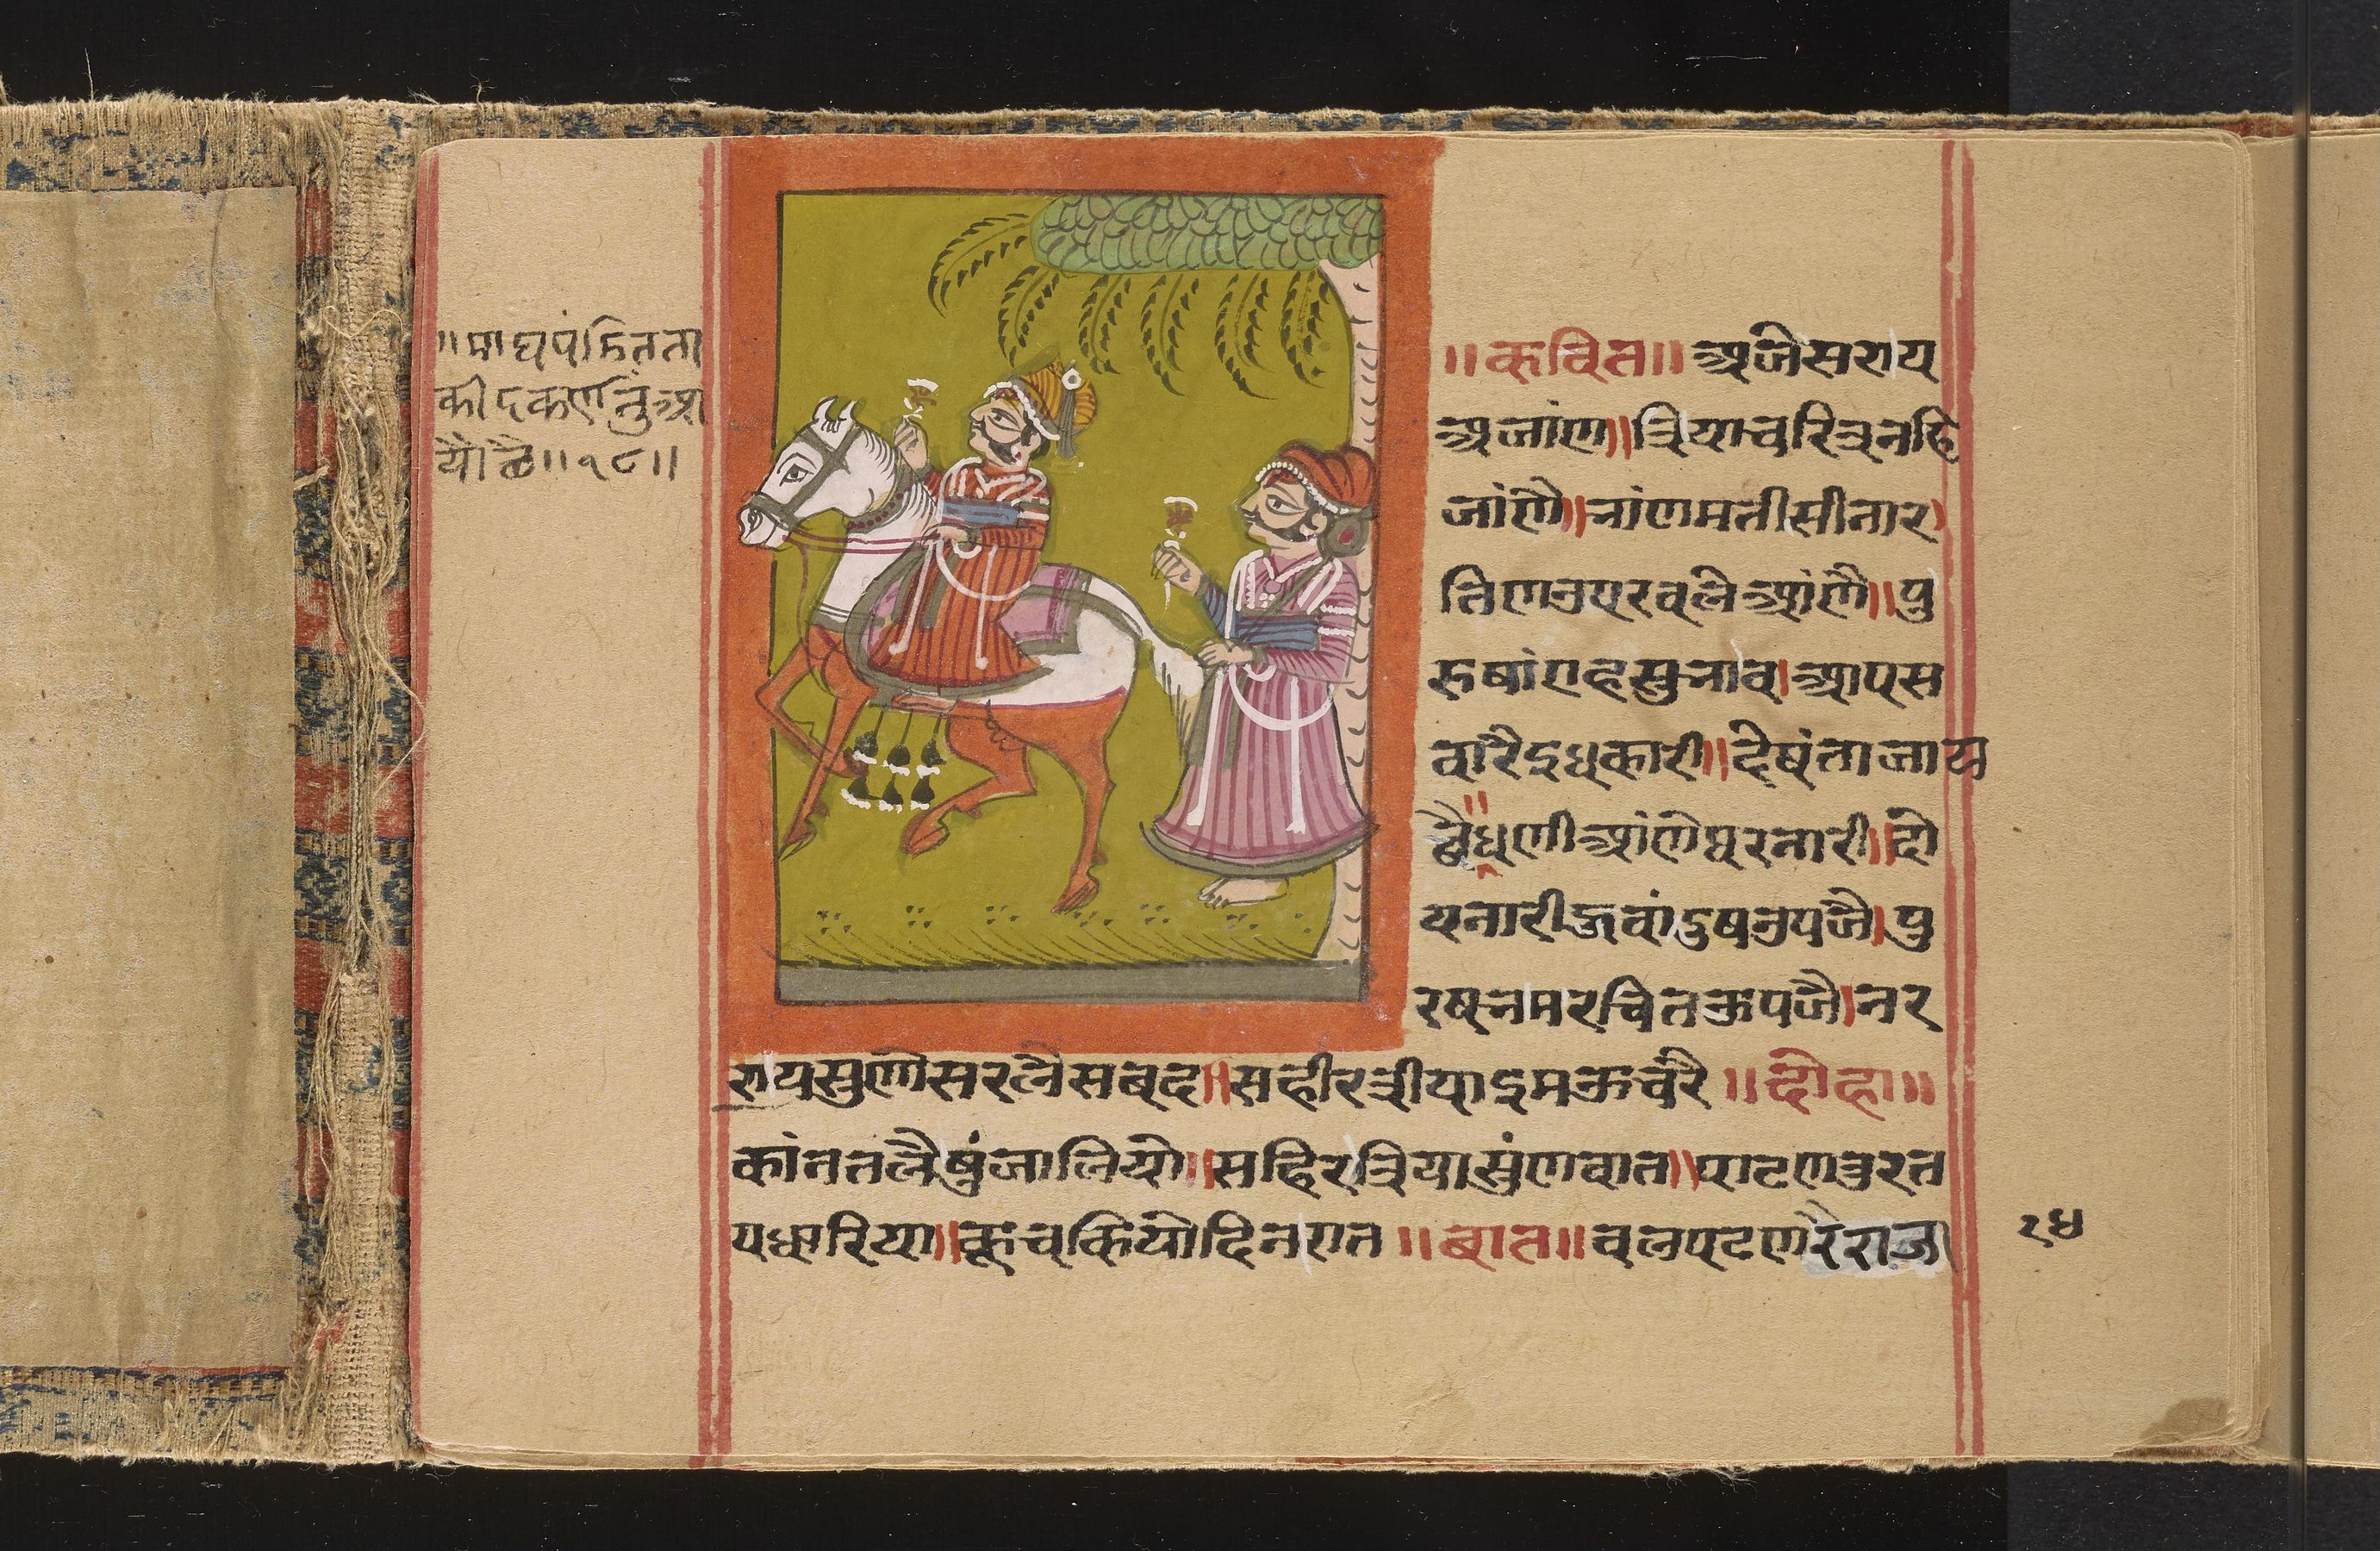 ॥माघपंडितता
कीदकणनुआ
यौछै॥१८॥
॥कवित॥अजेसराय
अजांण॥त्रियाचरित्रनहि
जांणै॥नांणमतीसीनार
तिणनृपरवलेआंणै॥पु
रुषांएहसुनाव।आपस
वारैइधकारी॥देषंताजाय
छैधणीआंणेघरनारी॥दो
यनारीजवांदुषनृपजै।पु
रषनमरचितऊपजै।नर
रायसुणेसरलैसबद॥सहीरत्रीयाइमऊचरै॥दोहा॥
कांनतलैषुंजालियो॥सहिरत्रियासुंणवात॥पाटणतुरत
पधारिया॥कूंचकियोदिनरात॥बात॥वलपटणरैराजा
२४